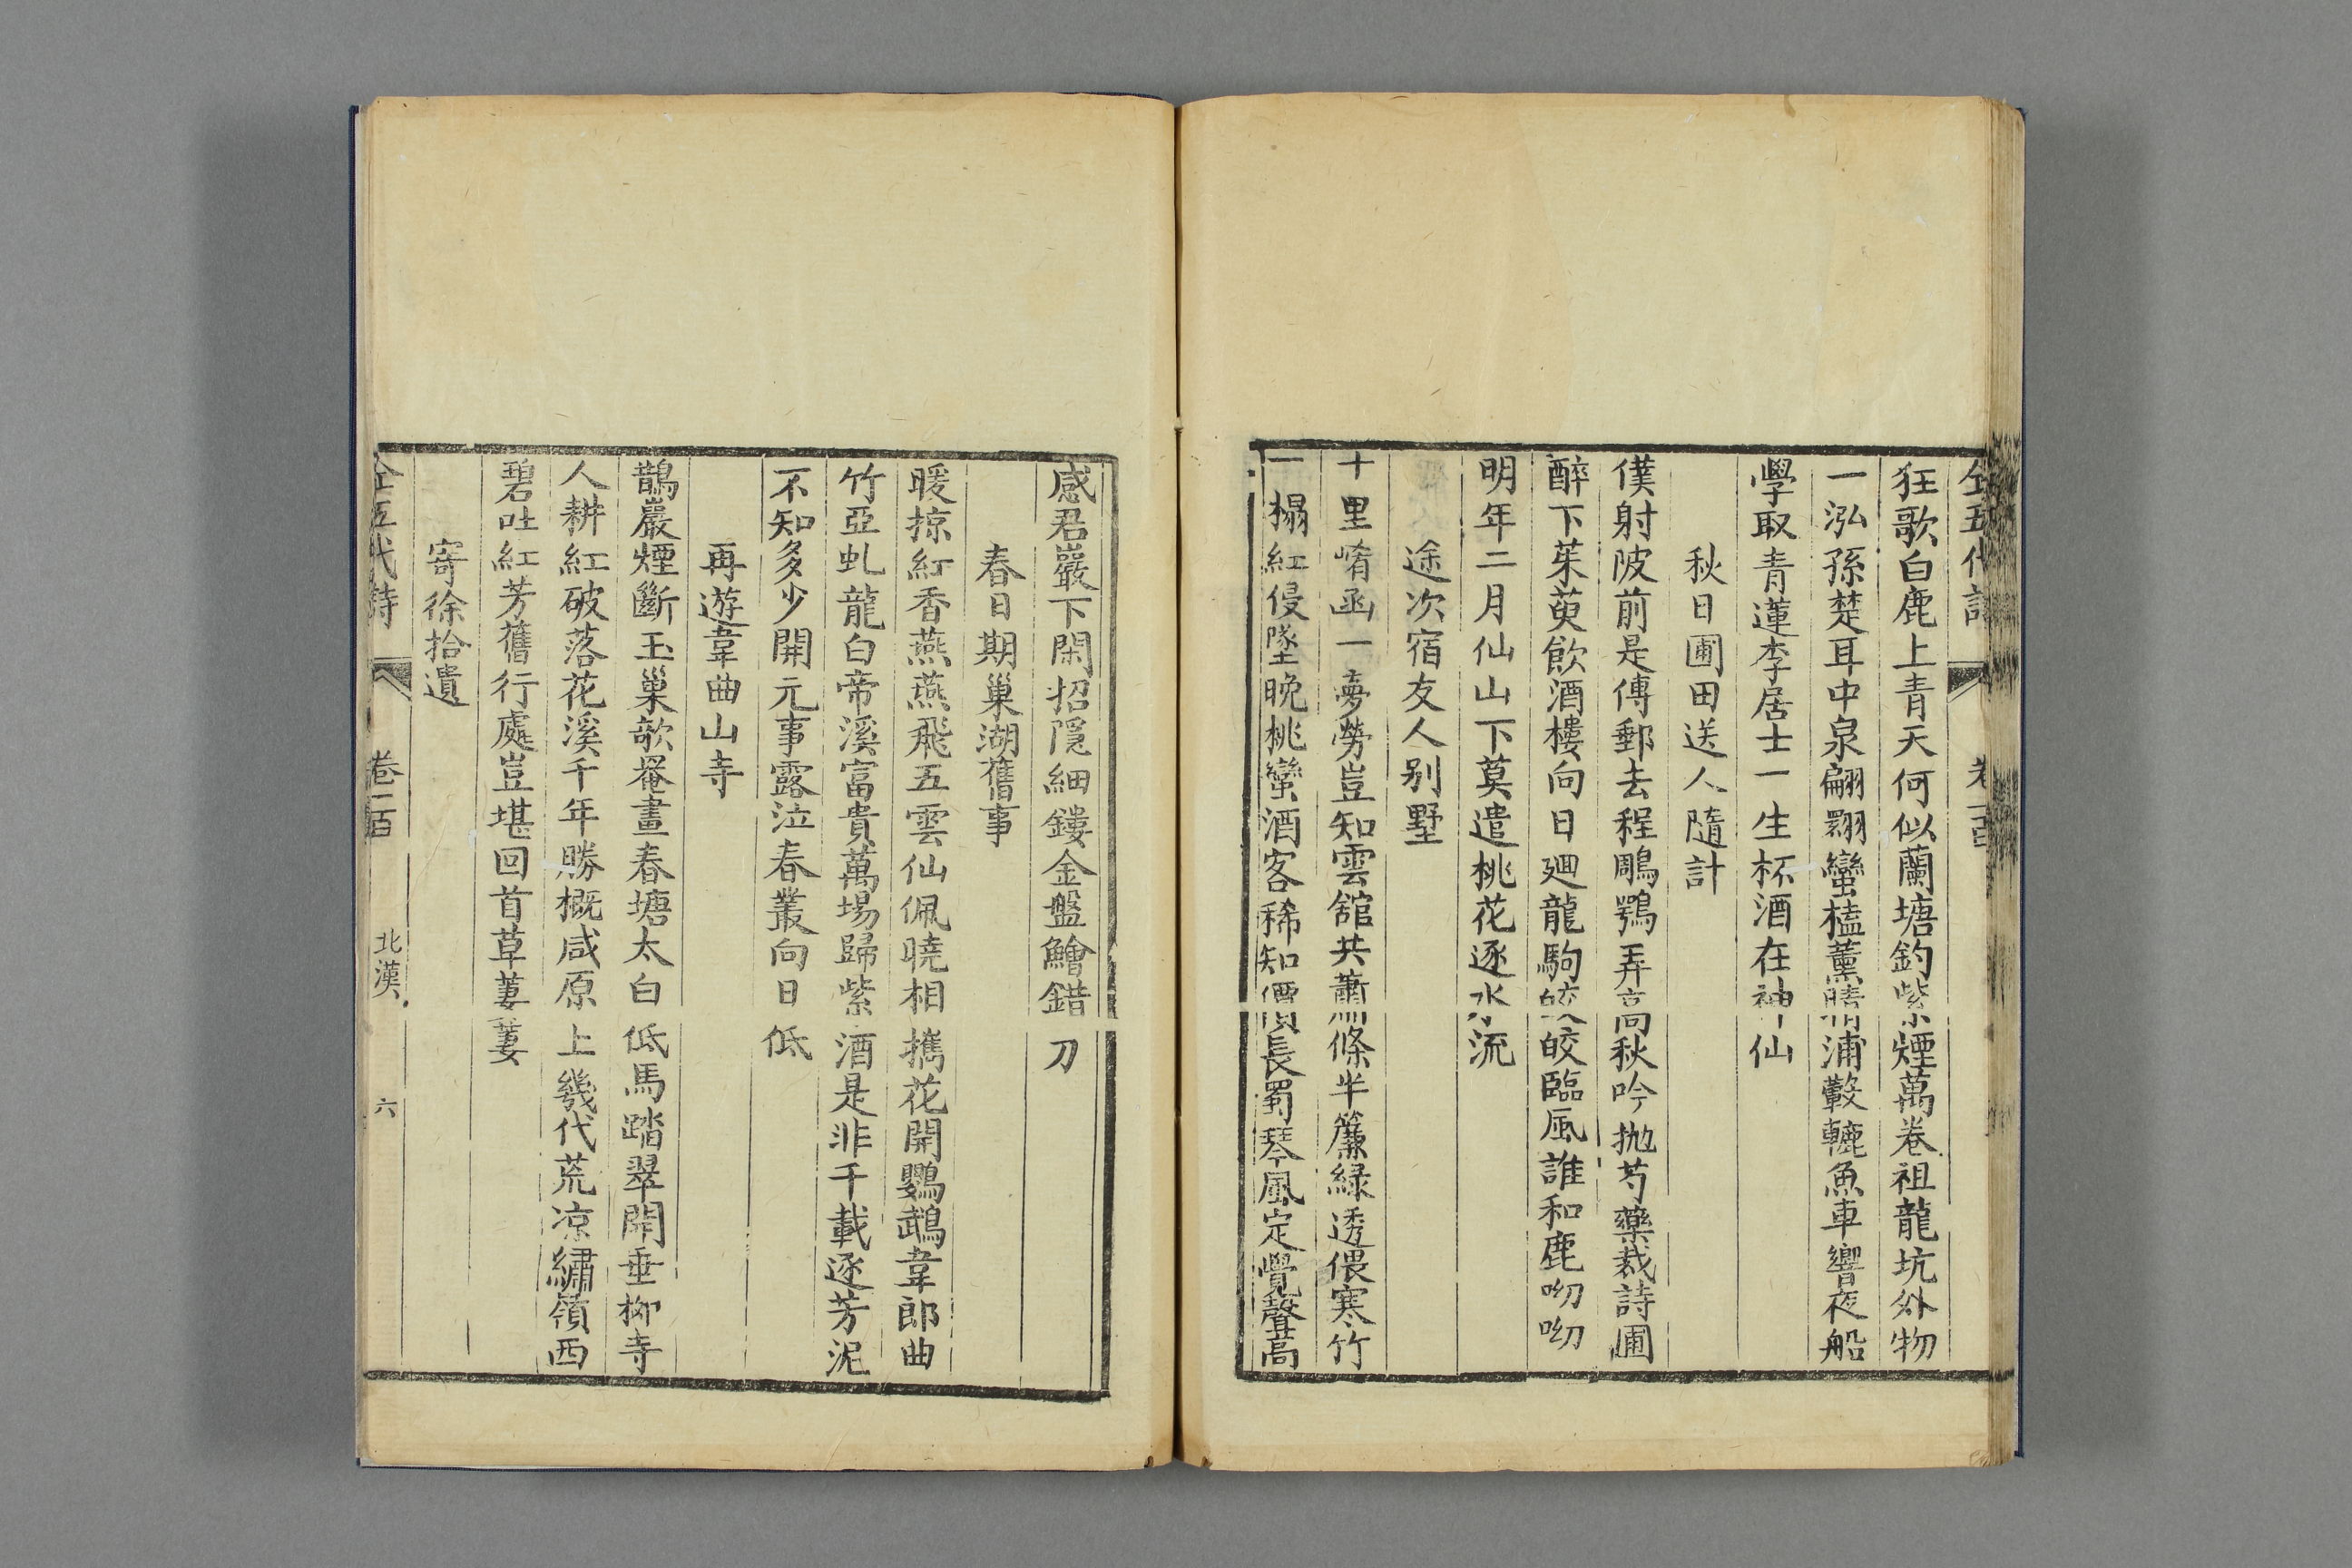 全五代詩 卷一百
狂歌白鹿上青天何似蘭塘釣紫煙萬卷祖龍坑外物
一泓孫楚耳中泉翩翾蠻榼薰晴浦轂轆魚車響夜船
學取青蓮李居士一生杯酒在神仙
秋日圃田送人隨計
僕射陂前是傳郵去程鵰鶚弄高秋吟抛芍藥裁詩圃
醉下茱萸飲酒樓向日迴龍駒皎皎臨風誰和鹿呦呦
明年二月仙山下莫遣桃花逐水流
途次宿友人别墅
十里崤函一夢勞豈知雲舘共蕭條半簾緑透偎寒竹
一榻紅侵墜晚桃蠻酒客稀知價長蜀琴風定覺聲高
感君巖下閑招隱細鏤金盤鱠錯刀
春日期巢湖舊事
暖掠紅香燕燕飛五雲仙佩曉相攜花開鸚鵡韋郎曲
竹亞虬龍白帝溪富貴萬場歸紫酒是非千載逐芳泥
不知多少開元事露泣春叢向日低
再遊韋曲山寺
鵲巖煙斷玉巢欹罨畫春塘太白低馬踏翠開垂柳寺
人耕紅破落花溪千年勝概咸原上幾代荒凉繡嶺西
碧吐紅芳舊行處豈堪回首草萋萋
寄徐拾遺
全五代詩 卷一百 北漢 六